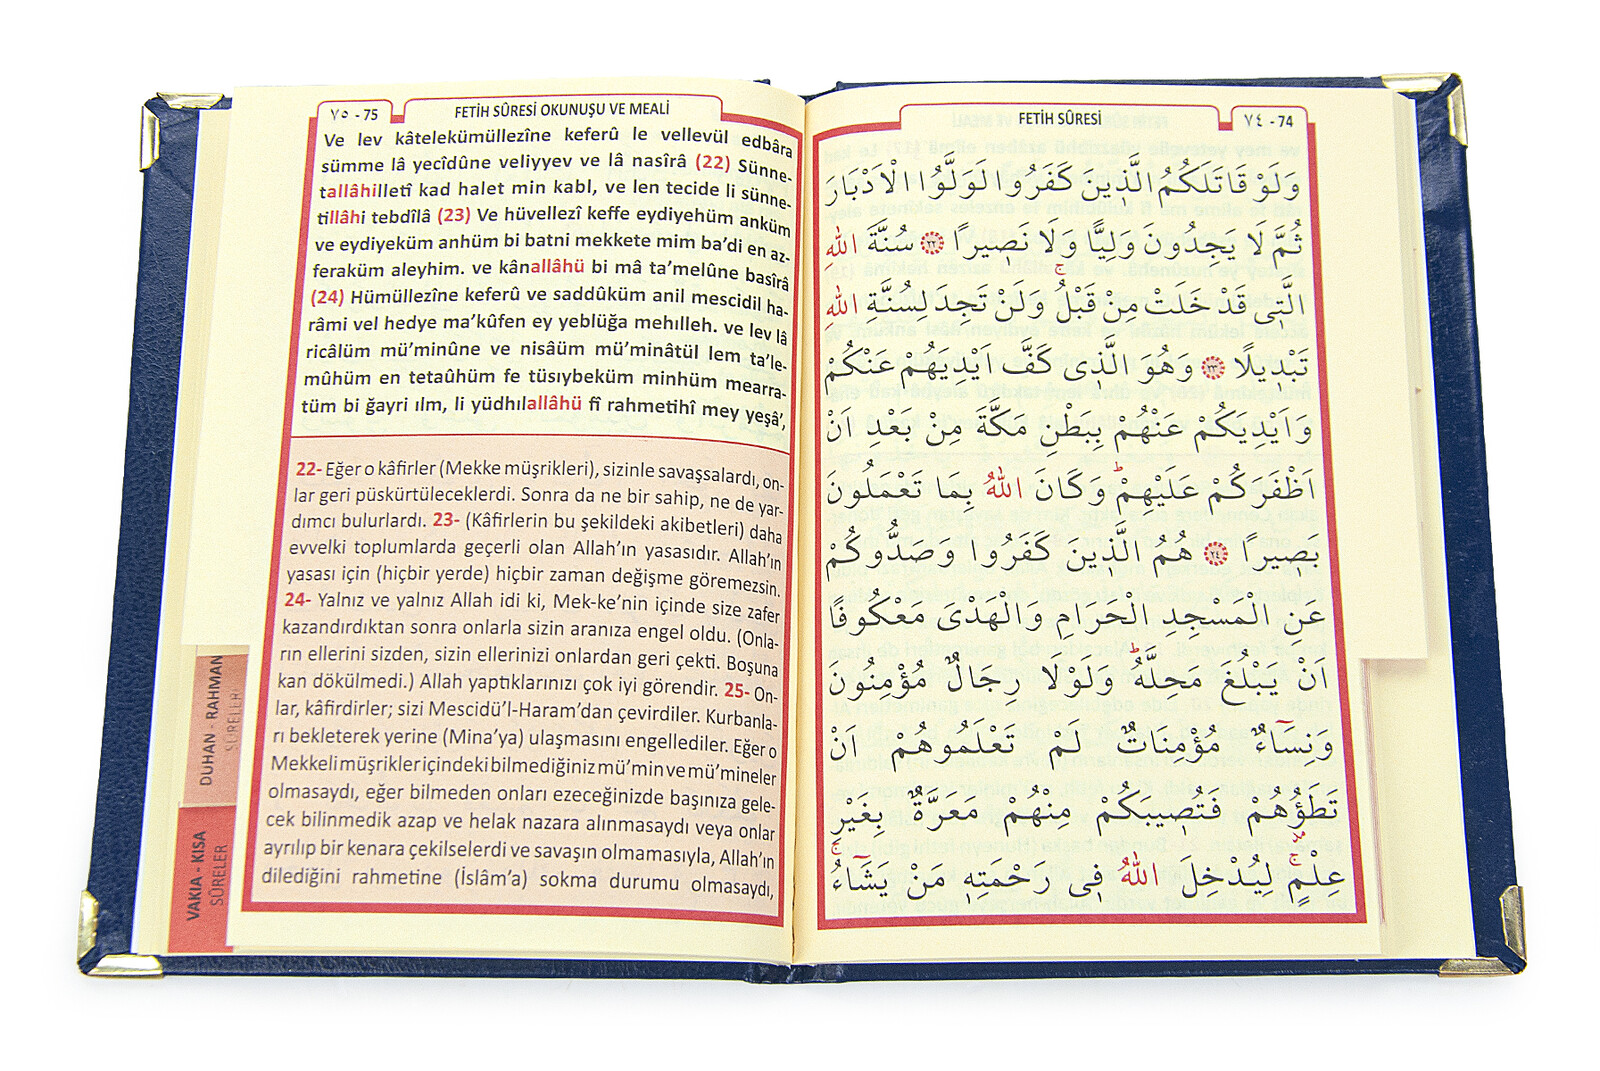 ٧٥ - 75
FETİH SÛRESİ OKUNUŞU VE MEALİ
Ve lev kâtelekümüllezîne keferû le vellevül edbâra
sümme lâ yecîdûne veliyyev ve lâ nasîrâ (22) Sünne-
tallâhilletî kad halet min kabl, ve len tecide li sünne-
tillâhi tebdîlâ (23) Ve hüvellezî keffe eydiyehüm anküm
ve eydiyeküm anhüm bi batni mekkete mim ba’di en az-
feraküm aleyhim. ve kânallâhü bi mâ ta’melûne basîrâ
(24) Hümüllezîne keferû ve saddûküm anil mescidil ha-
râmi vel hedye ma’kûfen ey yeblüğa mehılleh. ve lev lâ
ricâlüm mü’minûne ve nisâüm mü’minâtül lem ta’le-
mûhüm en tetaûhüm fe tüsıybeküm minhüm mearra-
tüm bi ğayri ılm, li yüdhılallâhü fî rahmetihî mey yeşâ’,
22- Eğer o kâfirler (Mekke müşrikleri), sizinle savaşsalardı, on-
lar geri püskürtüleceklerdi. Sonra da ne bir sahip, ne de yar-
dımcı bulurlardı. 23- (Kâfirlerin bu şekildeki akibetleri) daha
evvelki toplumlarda geçerli olan Allah’ın yasasıdır. Allah’ın
yasası için (hiçbir yerde) hiçbir zaman değişme göremezsin.
24- Yalnız ve yalnız Allah idi ki, Mek-ke’nin içinde size zafer
kazandırdıktan sonra onlarla sizin aranıza engel oldu. (Onla-
rın ellerini sizden, sizin ellerinizi onlardan geri çekti. Boşuna
kan dökülmedi.) Allah yaptıklarınızı çok iyi görendir. 25- On-
lar, kâfirdirler; sizi Mescidü’l-Haram’dan çevirdiler. Kurbanla-
rı bekleterek yerine (Mina’ya) ulaşmasını engellediler. Eğer o
Mekkeli müşrikler içindeki bilmediğiniz mü’min ve mü’mineler
olmasaydı, eğer bilmeden onları ezeceğinizde başınıza gele-
cek bilinmedik azap ve helak nazara alınmasaydı veya onlar
ayrılıp bir kenara çekilselerdi ve savaşın olmamasıyla, Allah’ın
dilediğini rahmetine (İslâm’a) sokma durumu olmasaydı,
DUHAN - RAHMAN
SÛRELER
VAKIA - KISA
SÛRELER
FETİH SÛRESİ
٧٤ - 74
وَلَوْ قَاتَلَكُمُ الَّذ۪ينَ كَفَرُوا لَوَلَّوُا الْاَدْبَارَ
ثُمَّ لَا يَجِدُونَ وَلِيًّا وَلَا نَص۪يرًا ٢٢ سُنَّةَ اللّٰهِ
الَّت۪ي قَدْ خَلَتْ مِنْ قَبْلُۚ وَلَنْ تَجِدَ لِسُنَّةِ اللّٰهِ
تَبْد۪يلًا ٢٣ وَهُوَ الَّذ۪ي كَفَّ اَيْدِيَهُمْ عَنْكُمْ
وَاَيْدِيَكُمْ عَنْهُمْ بِبَطْنِ مَكَّةَ مِنْ بَعْدِ اَنْ
اَظْفَرَكُمْ عَلَيْهِمْۜ وَكَانَ اللّٰهُ بِمَا تَعْمَلُونَ
بَص۪يرًا ٢٤ هُمُ الَّذ۪ينَ كَفَرُوا وَصَدُّوكُمْ
عَنِ الْمَسْجِدِ الْحَرَامِ وَالْهَدْيَ مَعْكُوفًا
اَنْ يَبْلُغَ مَحِلَّهُۜ وَلَوْلَا رِجَالٌ مُؤْمِنُونَ
وَنِسَٓاءٌ مُؤْمِنَاتٌ لَمْ تَعْلَمُوهُمْ اَنْ
تَطَؤُ۫هُمْ فَتُص۪يبَكُمْ مِنْهُمْ مَعَرَّةٌ بِغَيْرِ
عِلْمٍۚ لِيُدْخِلَ اللّٰهُ ف۪ي رَحْمَتِه۪ مَنْ يَشَٓاءُۚ